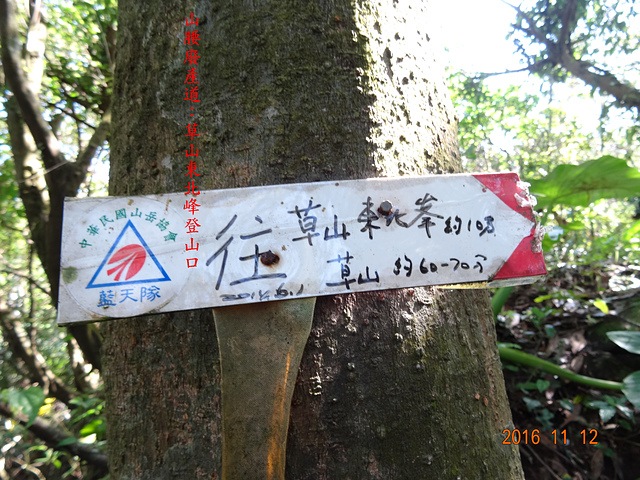 山腰廢產道：草山東北峰登山口
中華民國山岳協會
藍天隊
往
草山東北峯約10分
草山 約60-70分
2016 11 12